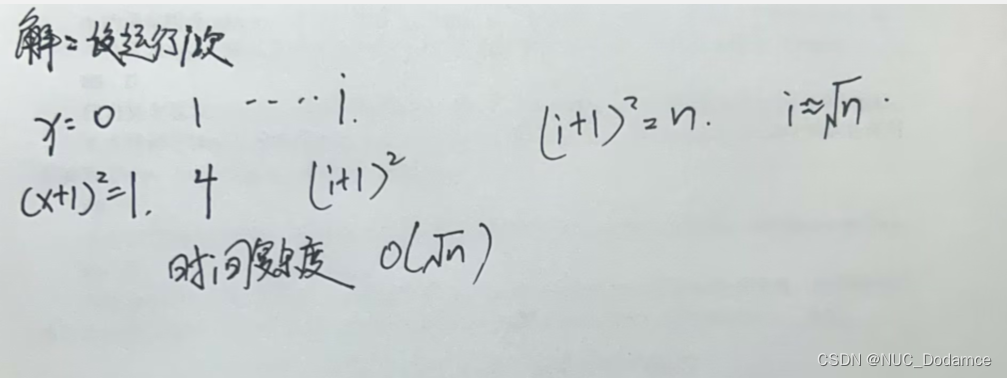 解:设运行i次
x=0 1 ····· i. (i+1)²=n. i≈√n.
(x+1)²=1. 4 (i+1)²
时间复杂度 O(√n)
CSDN @NUC_Dodamce